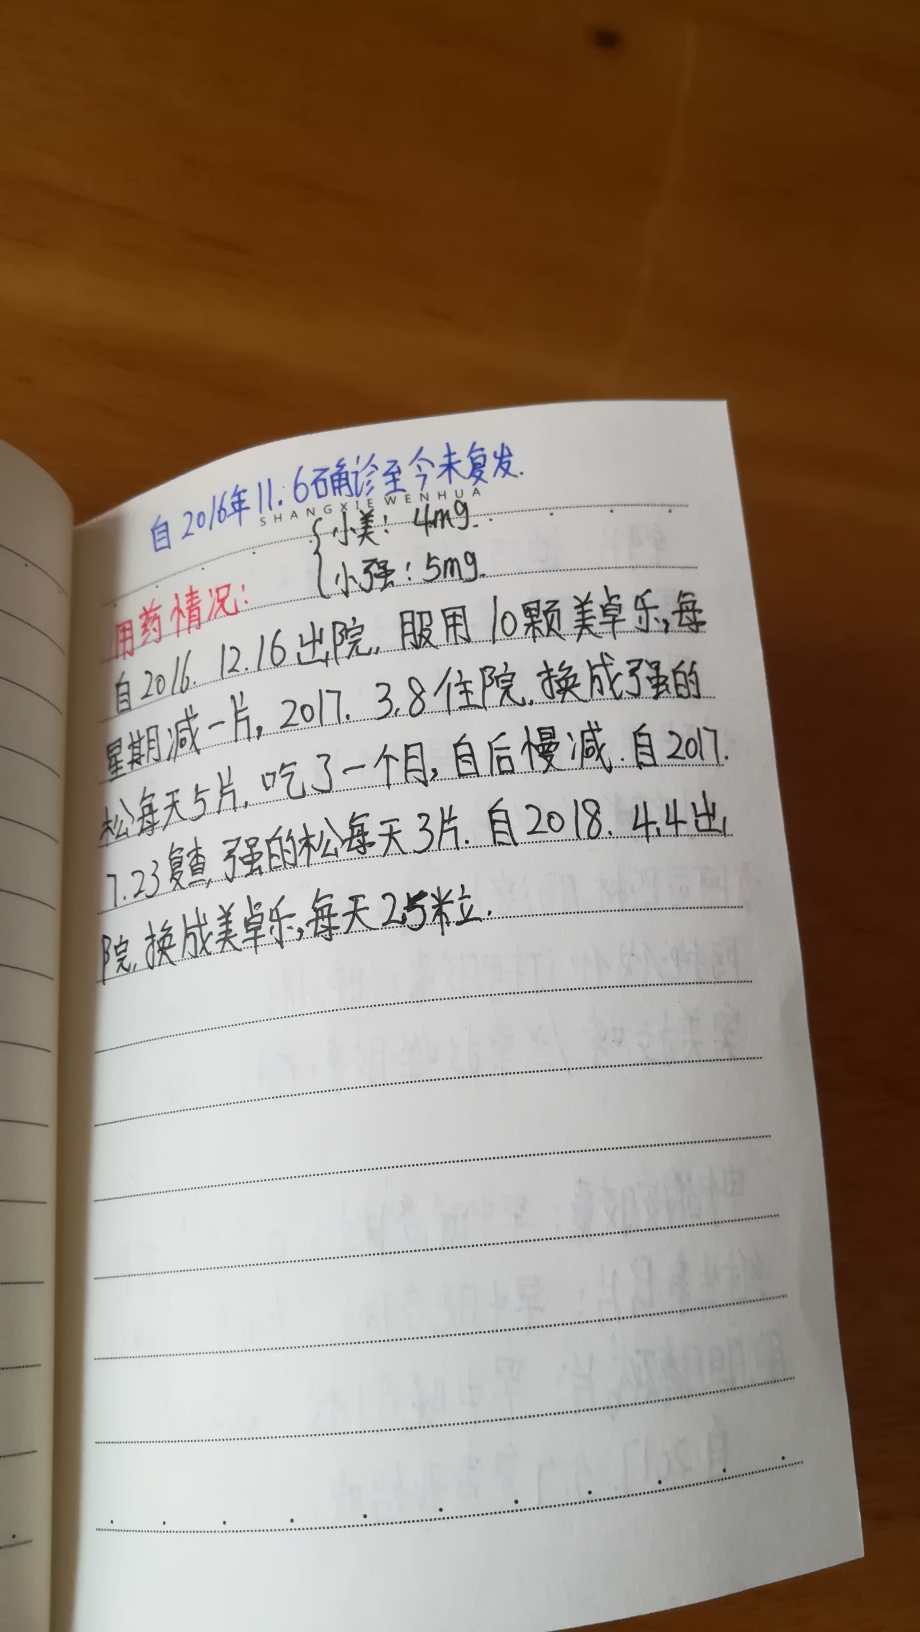 自2016年11.6确诊至今未复发.
SHANGXIEWENHUA
小美: 4mg.
小强: 5mg.
用药情况:
自2016. 12.16出院, 服用10颗美卓乐,每
星期减一片, 2017. 3.8住院, 换成强的
松每天5片, 吃了一个月, 自后慢减. 自2017.
7.23复查, 强的松每天3片. 自2018. 4.4出
院, 换成美卓乐,每天2.5粒.